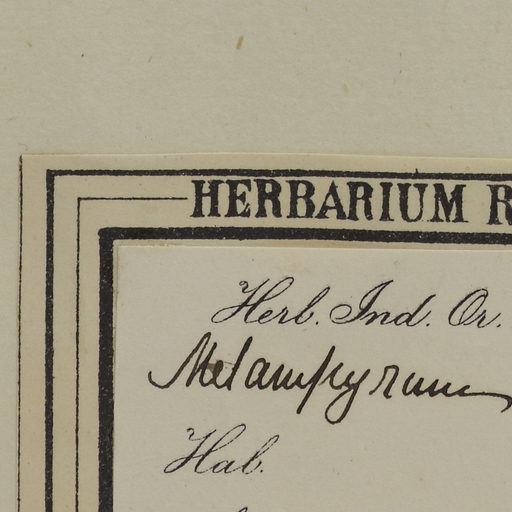 HERBARIUM R
Herb. Ind. Or.
Melampyrum
Hab.